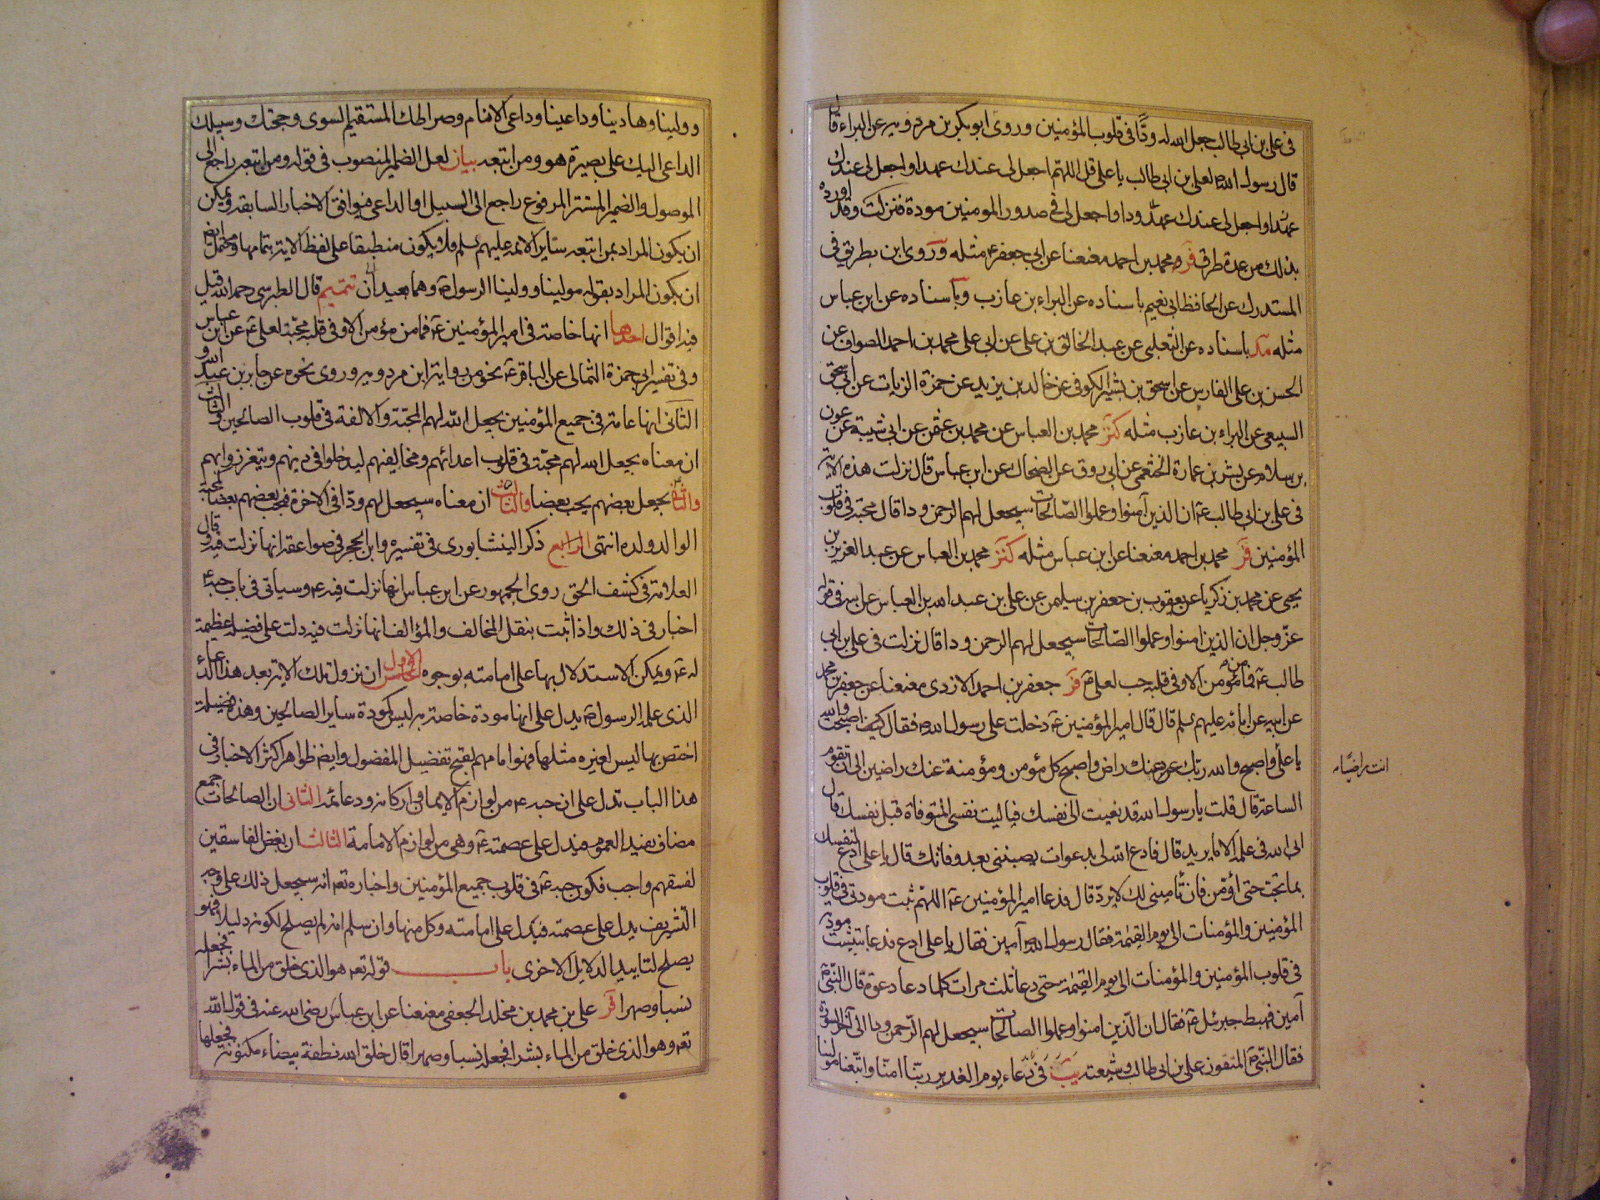 في علي بن ابي طالب جعل الله له ودًّا في قلوب المؤمنين وروى ابو بكر بن مردويه عن البراء قال
قال رسول الله لعلي بن ابي طالب يا علي قل اللهم اجعل لي عندك عهدا واجعل لي عندك
عهدا واجعل لي عندك ودا واجعل لي في صدور المومنين مودة فنزلت وقد اورده
بذلك من عدة طرق فر محمد بن احمد معنعنا عن ابي جعفر ع مثله وروى ابن بطريق في
المستدرك عن الحافظ ابي نعيم باسناده عن البراء بن عازب وباسناده عن ابن عباس
مثله مد باسناده عن الثعلبي عن عبد الخالق بن علي عن ابي علي محمد بن احمد الصواف عن
الحسن بن علي الفارسي عن اسحق بن بشير الكوفي عن خالد بن يزيد عن حمزة الزيات عن ابي اسحق
السبيعي عن البراء بن عازب مثله كنز محمد بن العباس عن محمد بن عن ابي شيبة عن عون
بن سلام عن بشر بن عمارة الخثعمي عن ابي روق عن الضحاك عن ابن عباس قال نزلت هذه الاية
في علي بن ابي طالب ع ان الذين آمنوا وعملوا الصالحات سيجعل لهم الرحمن ودا قال محبة في قلوب
المؤمنين فر محمد بن احمد معنعنا عن ابن عباس مثله كنز محمد بن العباس عن عبد العزيز بن
يحيى عن محمد بن زكريا عن يعقوب بن جعفر بن سليمن عن علي بن عبد الله بن العباس عن ابيه في قوله
عز وجل ان الذين امنوا وعملوا الصالحات سيجعل لهم الرحمن ودا قال نزلت في علي بن ابي
طالب ع فما من مؤمن الا وفي قلبه حب لعلي ع فر جعفر بن احمد الازدي معنعنا عن جعفر بن محمد
عن ابيه عن ابائه عليهم سلم قال قال امير المؤمنين ع دخلت على رسول الله فقال كيف اصبحت
يا علي واصبح والله ربك عنك راض واصبح كل مؤمن ومؤمنة عنك راضين الى ان تقوم
الساعة قال قلت يا رسول الله قد نعيت الى نفسك فيا ليت نفسي المتوفاة قبل نفسك قال
ابى الله في علمه الا ما يريد قال فادع الله لي بدعوات يصبنني بعد وفاتك قال يا علي ادع لنفسك
بما تحب حتى اؤمن فان تأميني لك لا يرد قال فدعا امير المؤمنين ع اللهم ثبت مودتي في قلوب
المؤمنين والمؤمنات الى يوم القيمة فقال رسول الله آمين فقال يا علي ادع فدعا بتثبيت مودته
في قلوب المؤمنين والمؤمنات الى يوم القيمة حتى دعا ثلث مرات كلما دعا دعوة قال النبي
آمين فهبط جبرئيل ع فقال ان الذين امنوا وعملوا الصالحات سيجعل لهم الرحمن ودا الى آخر السورة
فقال النبي المتقون علي بن ابي طالب وشيعته يب في دعاء يوم الغدير ربنا امنا واتبعنا مولانا
وولينا وهادينا وداعينا وداعي الانام وصراطك المستقيم السوي وحجتك وسبيلك
الداعي اليك على بصيرة هو ومن اتبعه بيان لعل الضمير المنصوب في قوله ومن اتبعه راجع الى
الموصول والضمير المستتر المرفوع راجع الى السبيل او الداعي فيوافق الاخبار السابقة ويمكن
ان يكون المراد بمن اتبعه ساير الائمة عليهم سلم ولا يكون منطبقا على لفظ الاية بتمامها ويحتمل ايضا
ان يكون المراد بقوله مولينا وولينا الرسول وهما بعيدان تتميم قال الطبرسي رحمه الله قيل
فيه اقوال احدها انها خاصة في امير المؤمنين ع فما من مؤمن الا وفي قلبه محبة لعلي ع عن ابن عباس
وفي تفسير ابي حمزة الثمالي عن الباقر ع نحو من رواية ابن مردويه وروى نحوه عن جابر بن عبد الله و
الثاني انها عامة في جميع المؤمنين يجعل الله لهم المحبة والالفة في قلوب الصالحين والثالث
ان معناه يجعل الله لهم محبة في قلوب اعدائهم ومخالفيهم ليدخلوا في دينهم ويتعززوا بهم
يجعل بعضهم يحب بعضا والثالث ان معناه سيجعل لهم ودا في الاخرة فيحب بعضهم بعضا كمحبة
الوالد ولده انتهى الرابع ذكر النيشابوري في تفسيره وابن الحجر في صواعقه انها نزلت فيه وقال
العلامة في كشف الحق روى الجمهور عن ابن عباس انها نزلت فيه ع وسياتي في باب حبه ع
اخبار في ذلك واذا ثبت بنقل المخالف والمؤالف انها نزلت فيه دلت على فضيلة عظيمة
له ع ويمكن الاستدلال بها على امامته بوجوه الاول ان نزول تلك الاية بعد هذا الدعاء
الذي علمه الرسول يدل على انها مودة خاصة به ليس كمودة ساير الصالحين وهذه فضيلة
اختص بها ليس لغيره مثلها فهو امامهم لقبح تفضيل المفضول وايضا ظواهر اكثر الاخبار في
هذا الباب تدل على ان حبه ع من لوازم الايمان واركانه ودعائمه الثاني ان الصالحات جمع
مضاف يفيد العموم فيدل على عصمته ع وهي من لوازم الامامة الثالث ان بغض الفاسقين
لفسقهم واجب فكون حبه ع في قلوب جميع المؤمنين واخباره تعه انه سيجعل ذلك على وجه
التشريف يدل على عصمته فيدل على امامته وكل منها وان سلم انه لم يصلح لكونه دليلا فهو
يصلح لتاييد الدلايل الاخرى باب قوله تعه هو الذي خلق من الماء بشرا فجعله
نسبا وصهرا فر علي بن محمد بن مخلد الجعفي معنعنا عن ابن عباس رضى الله عنه في قوله الله
تعه وهو الذي خلق من الماء بشرا فجعله نسبا وصهرا قال خلق الله نطفة بيضاء مكنونة فجعلها